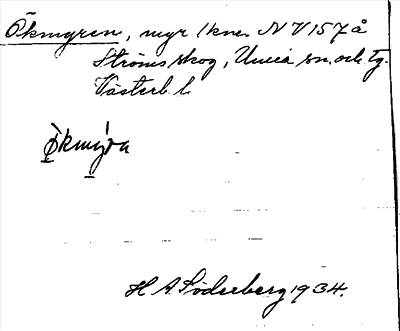 Ökmyren, myr 1 km NV 157 å
Ströms skog, Umeå sn. och tg.
Västerb. l.
Økmýra
H A Söderberg 1934.